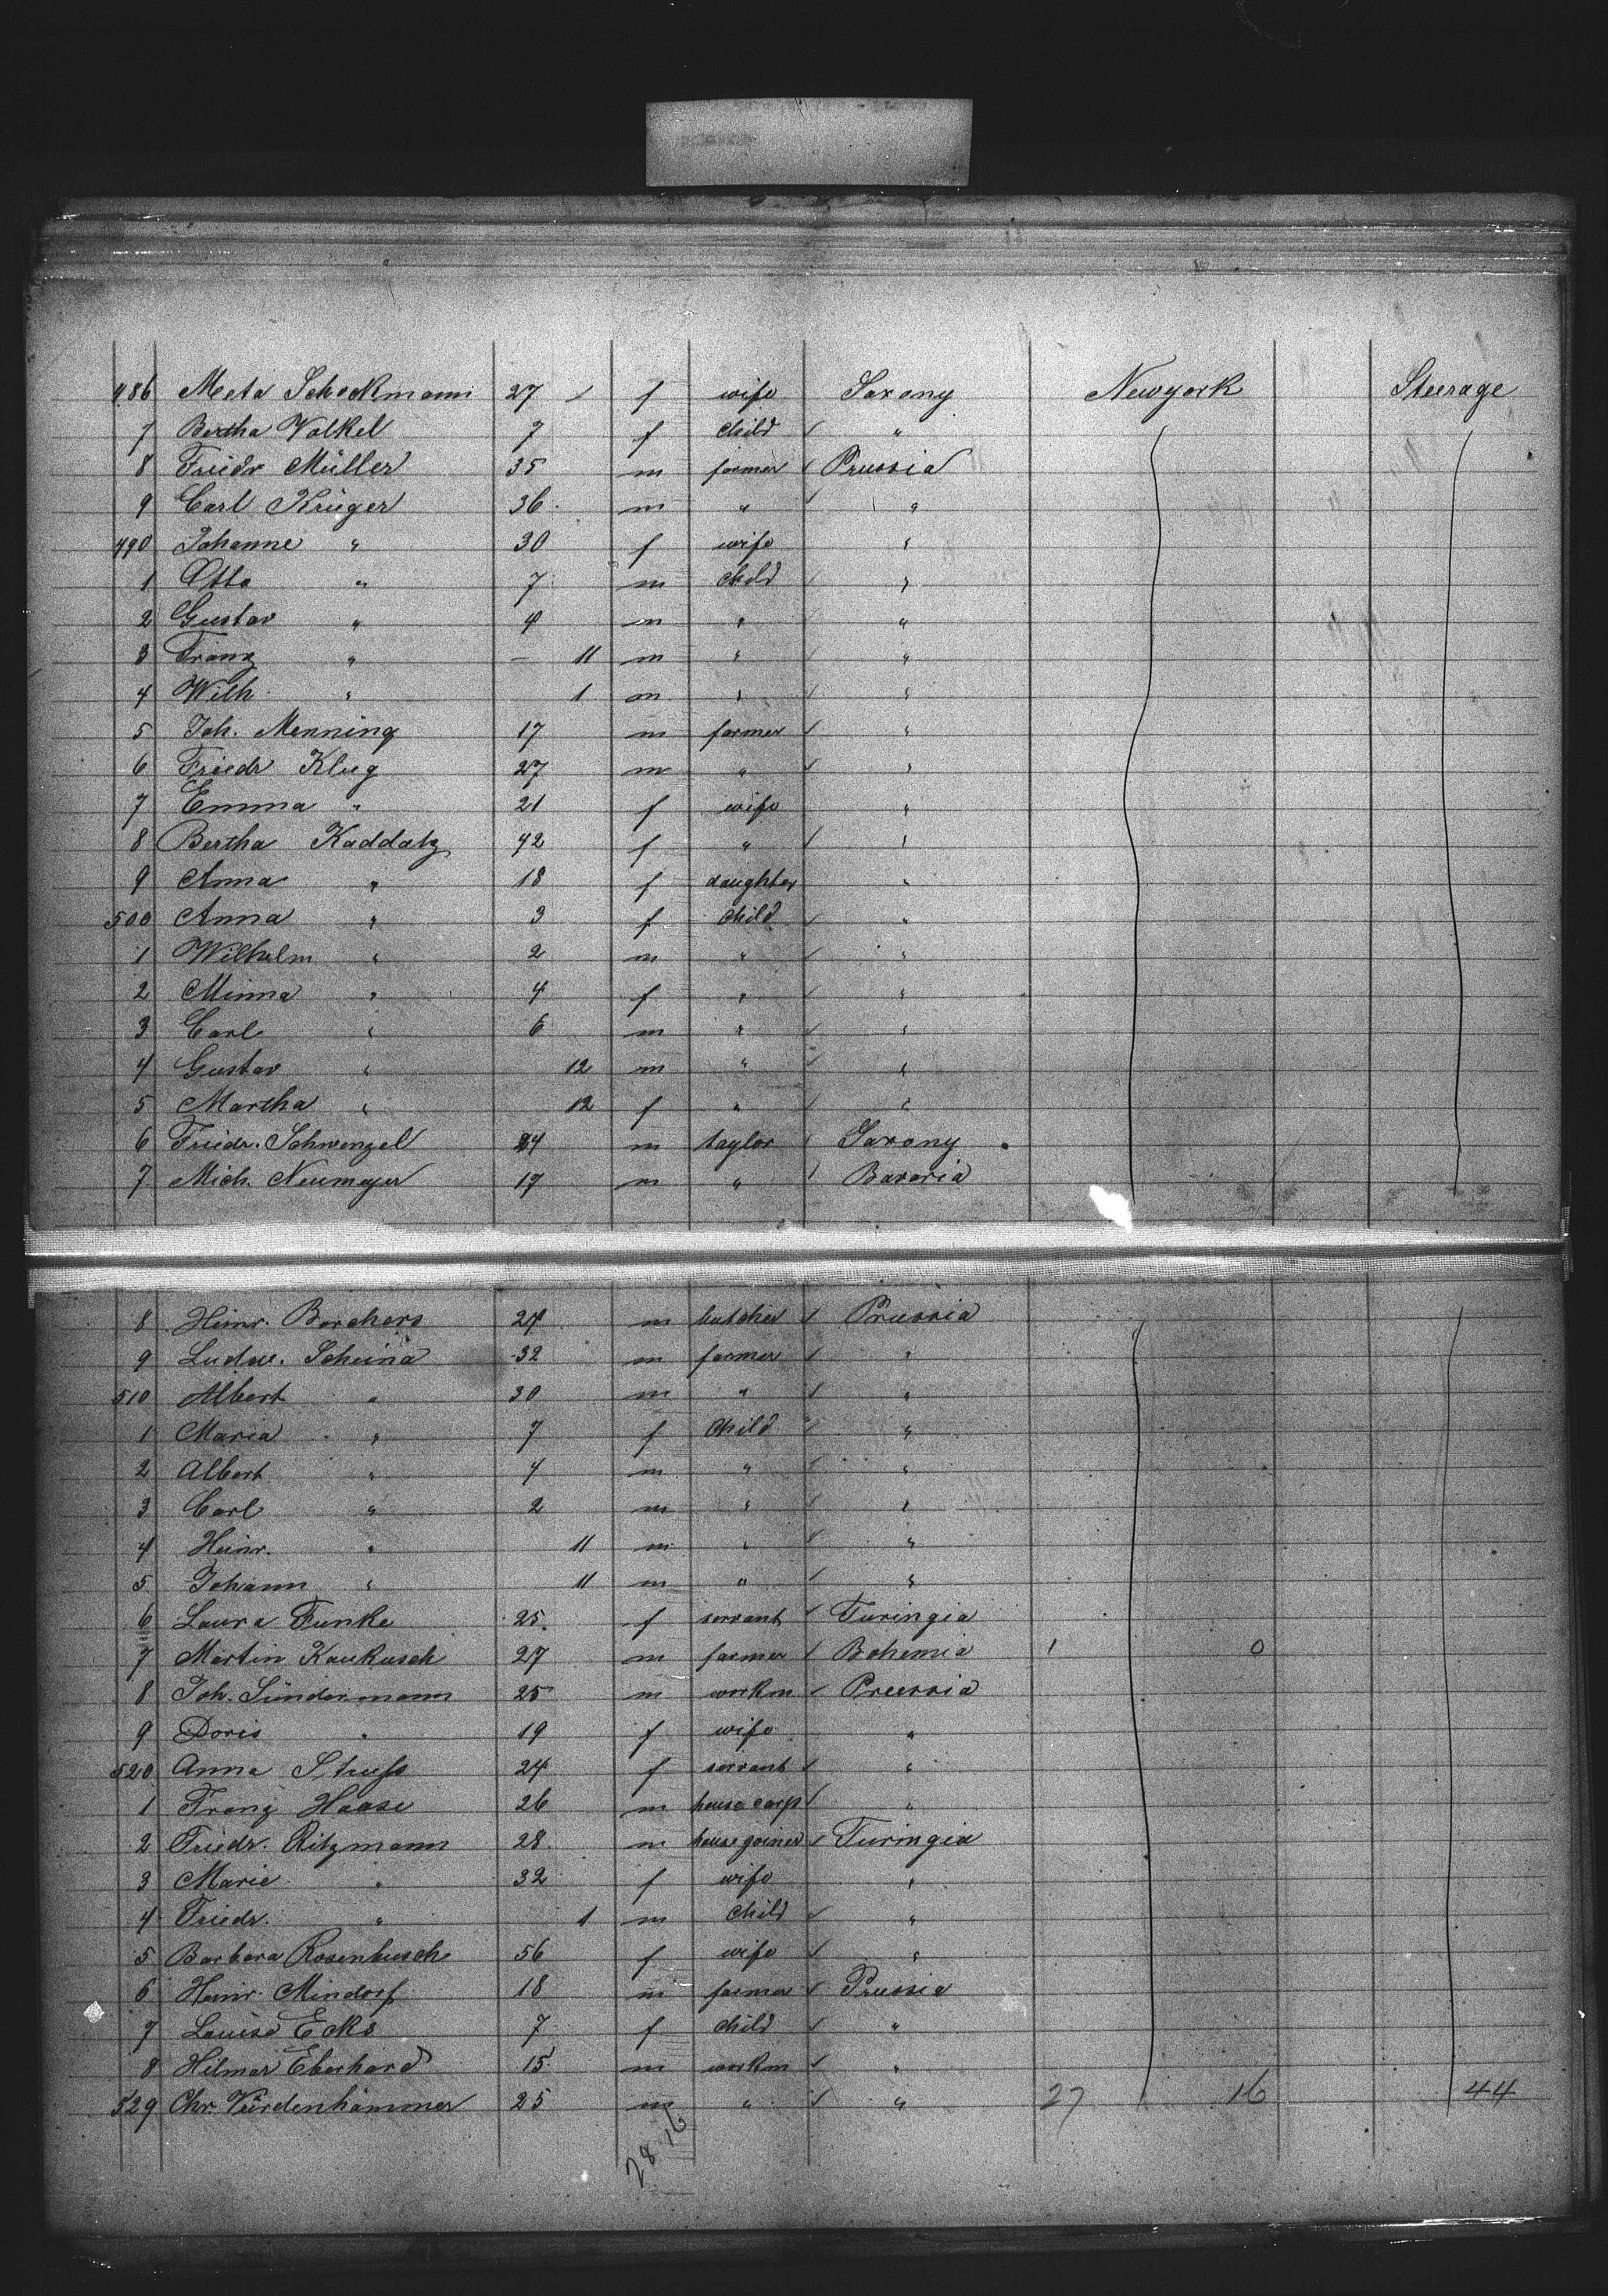 486 Meta Schockmann 27 f wife Saxony Newyork Steerage
7 Bertha Volkel 7 f child ✓ "
8 Friedr Müller 35 m farmer ✓ Prussia
9 Carl Krüger 36 m " ✓ "
490 Johanne " 30 f wife "
1 Otto " 7 m child ✓ "
2 Gustav " 4 m " ✓ "
3 Franz " – 11 m " ✓ "
4 Wilh. " 1 m " ✓ "
5 Joh. Menning 17 m farmer ✓ "
6 Friedr Klug 27 m " ✓ "
7 Emma " 21 f wife "
8 Bertha Kaddatz 42 f " ✓ "
9 Anna " 18 f daughter "
500 Anna " 3 f child ✓ "
1 Wilhelm " 2 m " ✓ "
2 Minna " 4 f " ✓ "
3 Carl " 6 m " ✓ "
4 Gustav " 12 m " ✓ "
5 Martha " 12 f " ✓ "
6 Friedr. Schwenzel 24 m taylor ✓ Saxony
7 Mich. Neumeyer 17 m " ✓ Bavaria
8 Heinr. Borchers 24 m butcher ✓ Prussia
9 Ludw. Scheina 32 m farmer ✓ "
510 Albert " 30 m " ✓ "
1 Maria " 7 f child ✓ "
2 Albert " 4 m " ✓ "
3 Carl " 2 m " ✓ "
4 Heinr. " 11 m " ✓ "
5 Johann " 11 m " ✓ "
6 Laura Funke 25 f servant ✓ Turingia
7 Martin Kaukusch 27 m farmer ✓ Bohemia 1 0
8 Joh. Sündermann 25 m workm ✓ Prussia
9 Doris " 19 f wife "
520 Anna Struss 24 f servant ✓ "
1 Franz Haase 26 m house carp ✓ "
2 Friedr. Ritzmann 28 m house joiner ✓ Turingia
3 Marie " 32 f wife "
4 Friedr. " 1 m child ✓ "
5 Barbara Rosenbusch 56 f wife ✓ "
6 Heinr. Mindorf 18 m farmer ✓ Prussia
7 Louise Ecks 7 f child ✓ "
8 Hilmar Eberhard 15 m workm ✓ "
529 Chr. Vürdenhämmer 25 m " ✓ " 27 16 44
28 16